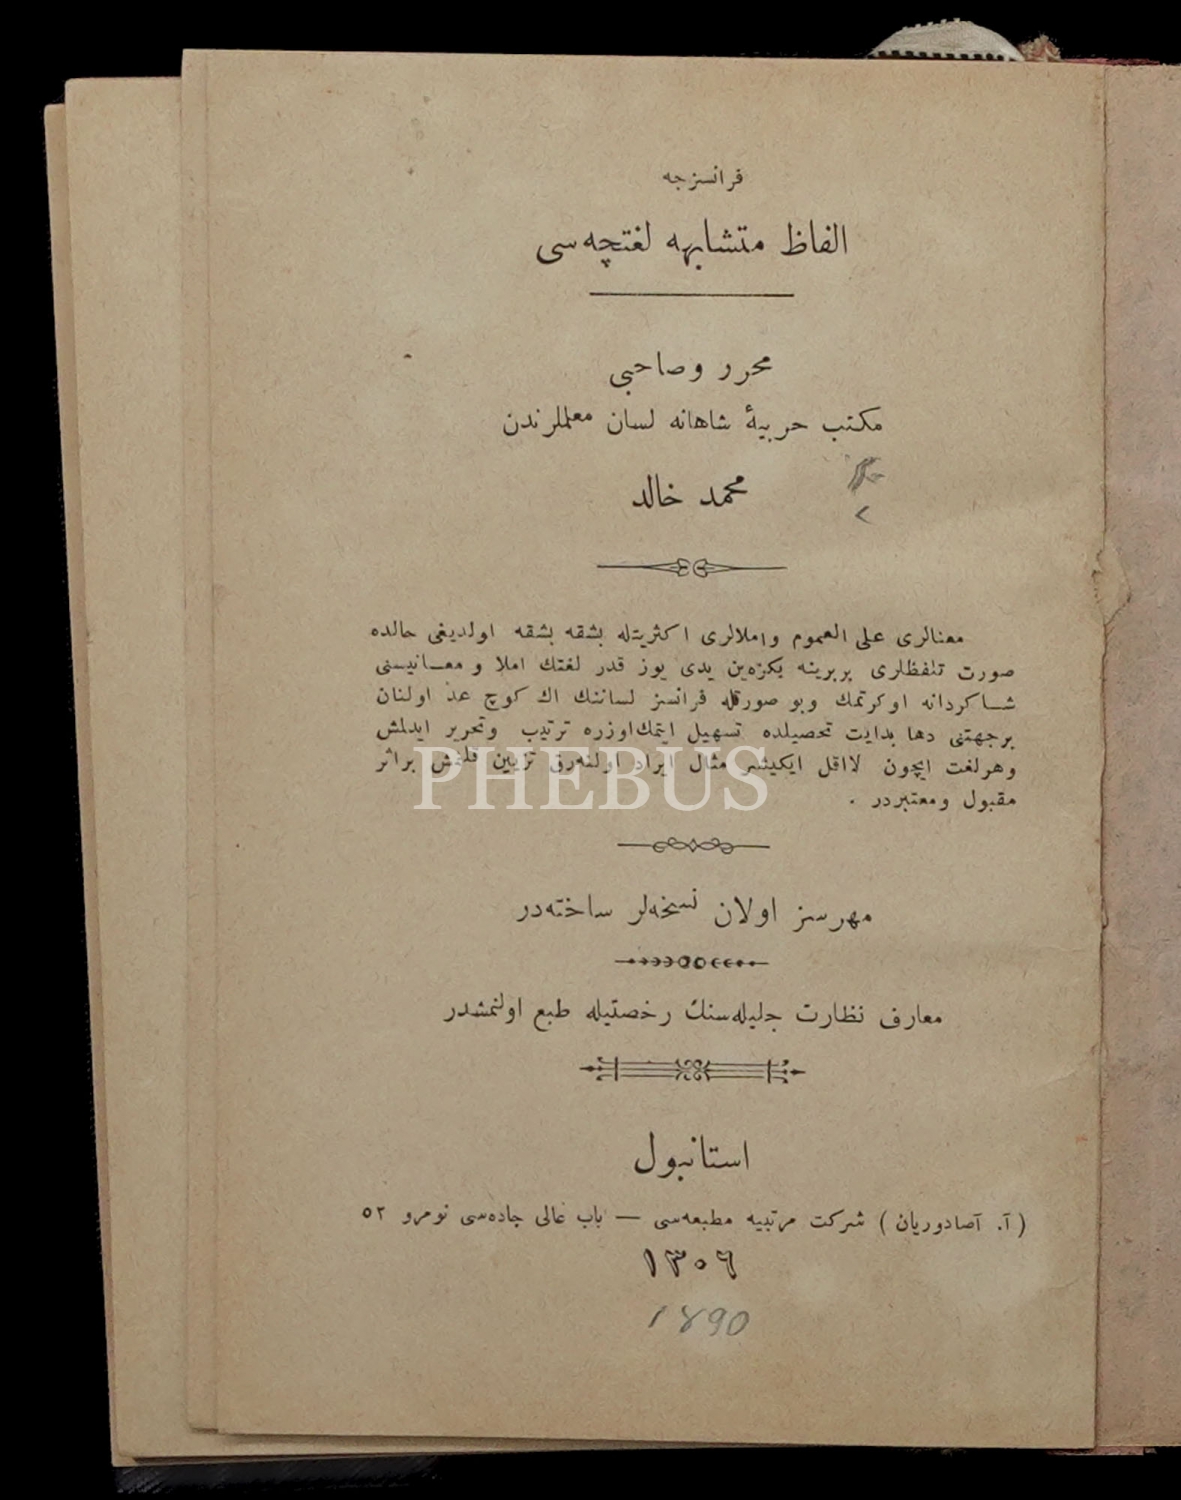 فرانسزجه
الفاظ متشابهه لغتچه‌سی
محرر وصاحبی
مكتب حربیهٔ شاهانه لسان معلملرندن
محمد خالد
معنالری علی العموم واملالری اكثریتله بشقه بشقه اولدیغی حالده
صورت تلفظلری بربرینه بكزه‌ین یدی یوز قدر لغتك املا و معـانیسنی
شـاكردانه اوكرتمك وبو صورتله فرانسز لساننك اك كوچ عد اولنان
برجهتنی دها بدایت تحصیلده تسهیل ایتمك اوزره ترتیب وتحریر ایدلمش
وهرلغت ایچون لااقل ایكیشر مثال ایراد اولنه‌رق تزیین قلنمش براثر
مقبول ومعتبردر .
PHEBUS
مهرسز اولان نسخه‌لر ساخته‌در
معارف نظارت جلیله‌سنك رخصتیله طبع اولنمشدر
استانبول
(آ. آصادوریان) شركت مرتبیه مطبعه‌سی — باب عالی جاده‌سی نومرو ٥٢
١٣٠٦
1890